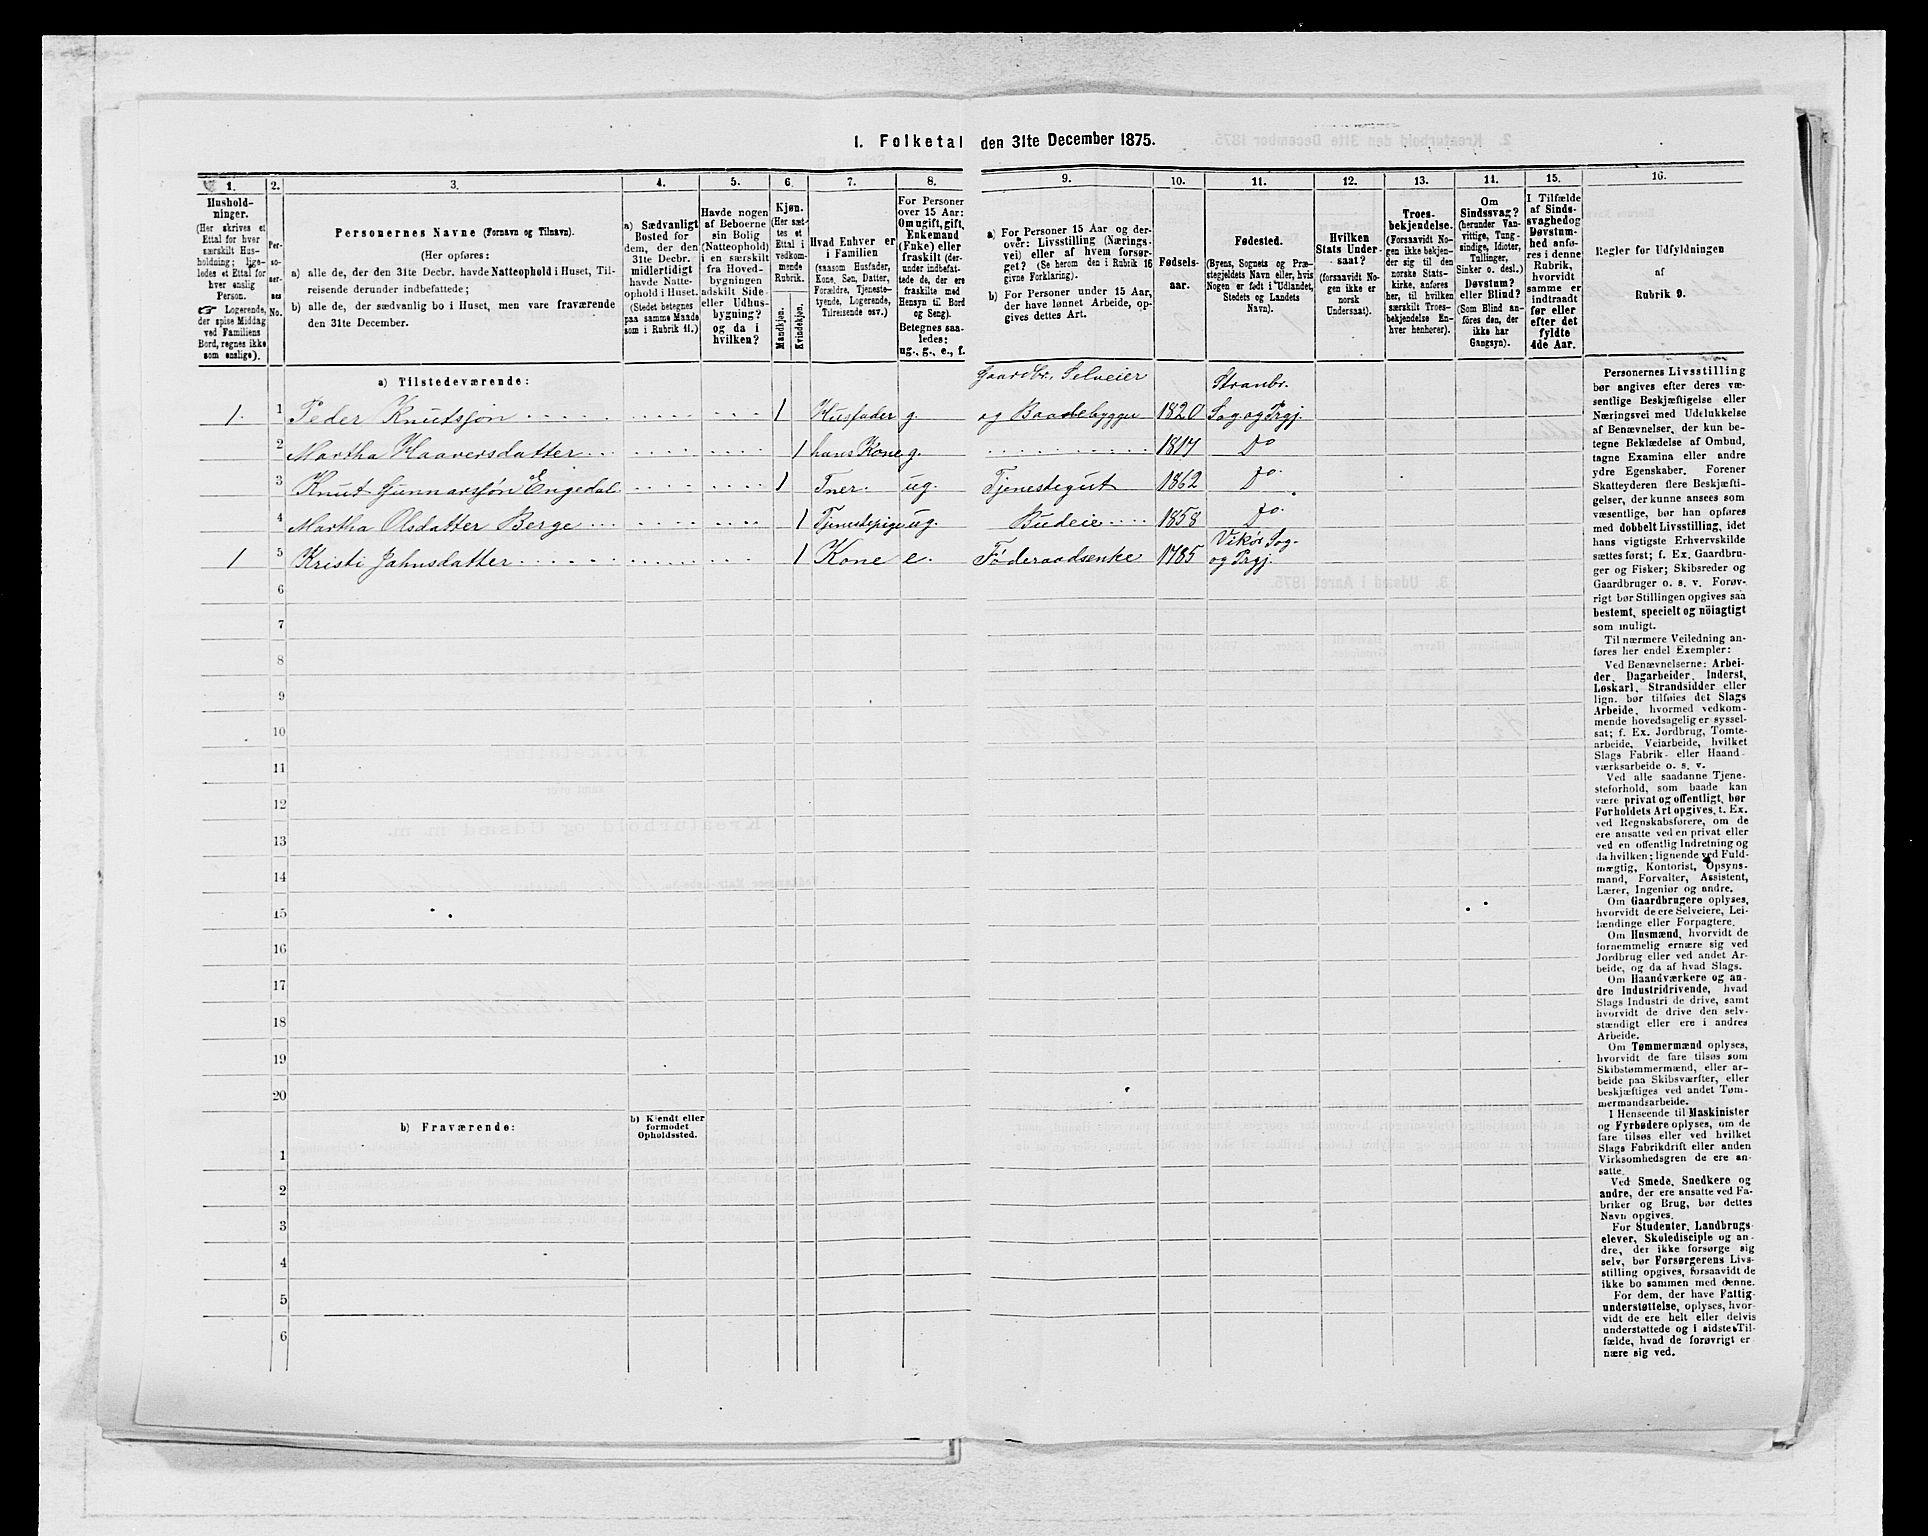 1. Folketal den 31te December 1875.
1. 2. 3. 4. 5. 6. 7. 8. 9. 10. 11. 12. 13. 14. 15. 16.
Hushold-
ninger.
(Her skrives et
Ettal for hver
særskilt Hus-
holdning; lige-
ledes et Ettal for
hver enslig
Person.
☞ Logerende,
der spise Middag
ved Familiens
Bord, regnes ikke
som enslige).
Per-
so-
ner-
nes
No.
Personernes Navne (Fornavn og Tilnavn).
(Her opføres:
a) alle de, der den 31te Decbr. havde Natteophold i Huset, Til-
reisende derunder indbefattede;
b) alle de, der sædvanlig bo i Huset, men vare fraværende
den 31te December.
a) Sædvanligt
Bosted for
dem, der den
31te Decbr.
midlertidigt
havde Natte-
ophold i Huset.
(Stedet betegnes
paa samme Maade
som i Rubrik 11.)
Havde nogen
af Beboerne
sin Bolig
(Natteophold)
i en særskilt
fra Hoved-
bygningen
adskilt Side-
eller Udhus-
bygning?
og da i
hvilken?
Kjøn.
(Her sæt-
tes et
Ettal i
vedkom-
mende
Rubrik.
Mandkjøn.
Kvindekjøn.
Hvad Enhver er
i Familien
(saasom Husfader,
Kone, Søn, Datter,
Forældre, Tjeneste-
tyende, Logerende,
Tilreisende osv.)
For Personer
over 15 Aar:
Om ugift, gift,
Enkemand
(Enke) eller
fraskilt (der-
under indbefat-
tede de, der ere
fraskilte med
Hensyn til Bord
og Seng).
Betegnes saa-
ledes:
ug., g., e., f.
a) For Personer 15 Aar og der-
over: Livsstilling (Nærings-
vei) eller af hvem forsør-
get? (Se herom den i Rubrik 16
givne Forklaring).
b) For Personer under 15 Aar,
der have lønnet Arbeide, op-
gives dettes Art.
Fødsels-
aar.
Fødested.
(Byens, Sognets og Præ-
stegjeldets Navn eller, hvis
Nogen er født i Udlandet,
Stedets og Landets
Navn).
Hvilken
Stats Under-
saat?
(forsaavidt No-
gen ikke er
norsk
Undersaat).
Troes-
bekjendelse.
(Forsaavidt No-
gen ikke bekjen-
der sig til den
norske Stats-
kirke, anføres
her, til hvilken
særskilt Troes-
bekjendelse En-
hver henhører).
Om
Sindssvag?
(herunder Van-
vittige, Tung-
sindige, Idioter,
Tullinger,
Sinker o. desl.)
Døvstum?
eller Blind?
(Som Blind an-
føres den, der
ikke har
Gangsyn).
I Tilfælde
af Sinds-
svaghed og
Døvstum-
hed anfø-
res i denne
Rubrik,
hvorvidt
samme er
indtraadt
før eller
efter det
fyldte
4de Aar.
Regler for Udfyldningen
af
Rubrik 9.
a) Tilstedeværende:
Gaardbr. Selveier Stranbr.
1. 1 Peder Knutsjøn 1 Husfader g. og Baadebygger 1820 Sog. og Prgj.
2 Martha Haaversdatter 1 hans Kone g. 1817 Do
3 Knut Gunnarsjøn Engedal 1 Tner. ug. Tjenestegut 1862 Do.
4 Martha Olsdatter Berge 1 Tjenestepige ug. Budeie 1858 Do.
Vikør Sog.
1 5 Kristi Jahnsdatter 1 Kone e. Føderaadsenke 1785 og Prgj.
6
7
8
9
10
11
12
13
14
15
16
17
18
19
20
b) Fraværende:
b) Kjendt eller
formodet
Opholdssted.
1
2
3
4
5
6
Personernes Livsstilling
bør angives efter deres væ-
sentlige Beskjæftigelse eller
Næringsvei med Udelukkelse
af Benævnelser, der kun be-
tegne Beklædelse af Ombud,
tagne Examina eller andre
ydre Egenskaber. Forener
Skatteyderen flere Beskjæfti-
gelser, der kunne ansees som
væsentlige, bør han opføres
med dobbelt Livsstilling, idet
hans vigtigste Erhvervskilde
sættes først; f. Ex. Gaardbru-
ger og Fisker; Skibsreder og
Gaardbruger o. s. v. Forøv-
rigt bør Stillingen opgives saa
bestemt, specielt og nöiagtigt
som muligt.
Til nærmere Veiledning an-
føres her endel Exempler:
Ved Benævnelserne: Arbei-
der, Dagarbeider, Inderst,
Løskarl, Strandsidder eller
lign. bør tilføies det Slags
Arbeide, hvormed vedkom-
mende hovedsagelig er syssel-
sat; f. Ex. Jordbrug, Tomte-
arbeide, Veiarbeide, hvilket
Slags Fabrik- eller Haand-
værksarbeide o. s. v.
Ved alle saadanne Tjene-
steforhold, som baade kan
være privat og offentligt, bør
Forholdets Art opgives, t. Ex.
ved Regnskabsførere, om de
ere ansatte ved en privat eller
ved en offentlig Indretning og
da hvilken; lignende ved Fuld-
mægtig, Kontorist, Opsyns-
mand, Forvalter, Assistent,
Lærer, Ingeniør og andre.
Om Gaardbrugere oplyses,
hvorvidt de ere Selveiere, Lei-
lændinge eller Forpagtere.
Om Husmænd, hvorvidt de
fornemmelig ernære sig ved
Jordbrug eller ved andet Ar-
beide, og da af hvad Slags.
Om Haandværkere og an-
dre Industridrivende, hvad
Slags Industri de drive, samt
hvorvidt de drive den selv-
stændigt eller ere i andres
Arbeide.
Om Tømmermænd oplyses,
hvorvidt de fare tilsøs som
Skibstømmermænd, eller ar-
beide paa Skibsværfter, eller
beskjæftiges ved andet Tøm-
mermandsarbeide.
I Henseende til Maskinister
og Fyrbødere oplyses, om de
fare tilsøs eller ved hvilket
Slags Fabrikdrift eller anden
Virksomhedsgren de ere an-
satte.
Ved Smede, Snedkere og
andre, der ere ansatte ved Fa-
briker og Brug, bør dettes
Navn opgives.
For Studenter, Landbrugs-
elever, Skoledisciple og an-
dre, der ikke forsørge sig
selv, bør Forsørgerens Livs-
stilling opgives, forsaavidt de
ikke bo sammen med denne.
For dem, der have Fattig-
understøttelse, oplyses, hvor-
vidt de ere helt eller delvis
understøttede og i sidste Til-
fælde, hvad de forøvrigt er-
nære sig ved.